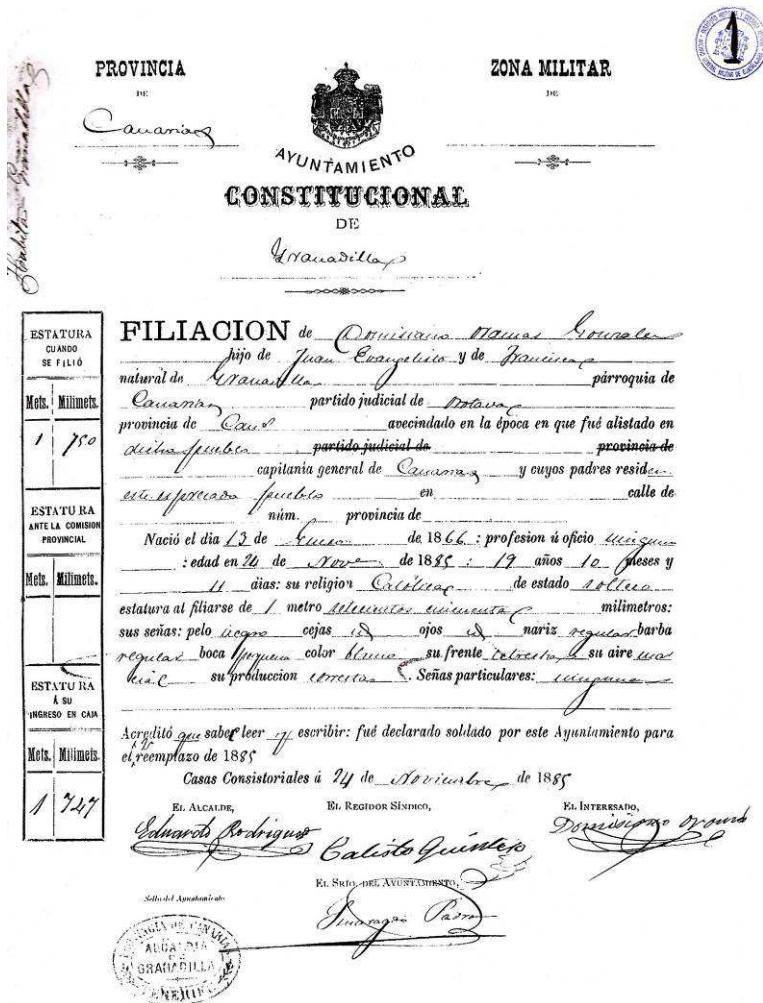 1
PROVINCIA
DE
Canarias
ZONA MILITAR
DE
AYUNTAMIENTO
CONSTITUCIONAL
DE
Granadilla
Granadilla
ESTATURA
CUANDO
SE FILIÓ
Mets. Milimets.
1 750
ESTATURA
ANTE LA COMISION
PROVINCIAL
Mets. Milimets.
ESTATURA
Á SU
INGRESO EN CAJA
Mets. Milimets.
1 747
FILIACION de Domisiano Oramas Gonzales
hijo de Juan Evangelista y de Francisca
natural de Granadilla párroquia de
Canarias partido judicial de Orotava
provincia de Can.s avecindado en la época en que fué alistado en
dicho pueblo partido judicial de provincia de
capitanía general de Canarias y cuyos padres residen
este expresado pueblo en calle de
núm. provincia de
Nació el dia 13 de Enero de 1866: profesion ú oficio ninguno
: edad en 24 de Nove de 1885: 19 años 10 meses y
11 dias: su religion Católica de estado soltero
estatura al filiarse de 1 metro setecientos cincuenta milimetros:
sus señas: pelo negro cejas id ojos id nariz regular barba
regular boca pequeña color blanco su frente su aire mar
cial su produccion correcta. Señas particulares: ninguna
Acreditó que saber leer y escribir: fué declarado soldado por este Ayuntamiento para
el reemplazo de 1885
Casas Consistoriales á 24 de Noviembre de 1885
EL ALCALDE,
Eduardo Rodriguez
EL REGIDOR SÍNDICO,
Calisto Quintero
EL INTERESADO,
Domisiano Oramas
EL SRIO. DEL AYUNTAMIENTO,
Padron
Sello del Ayuntamiento
ALCALDIA
DE
GRANADILLA
TENERIFE